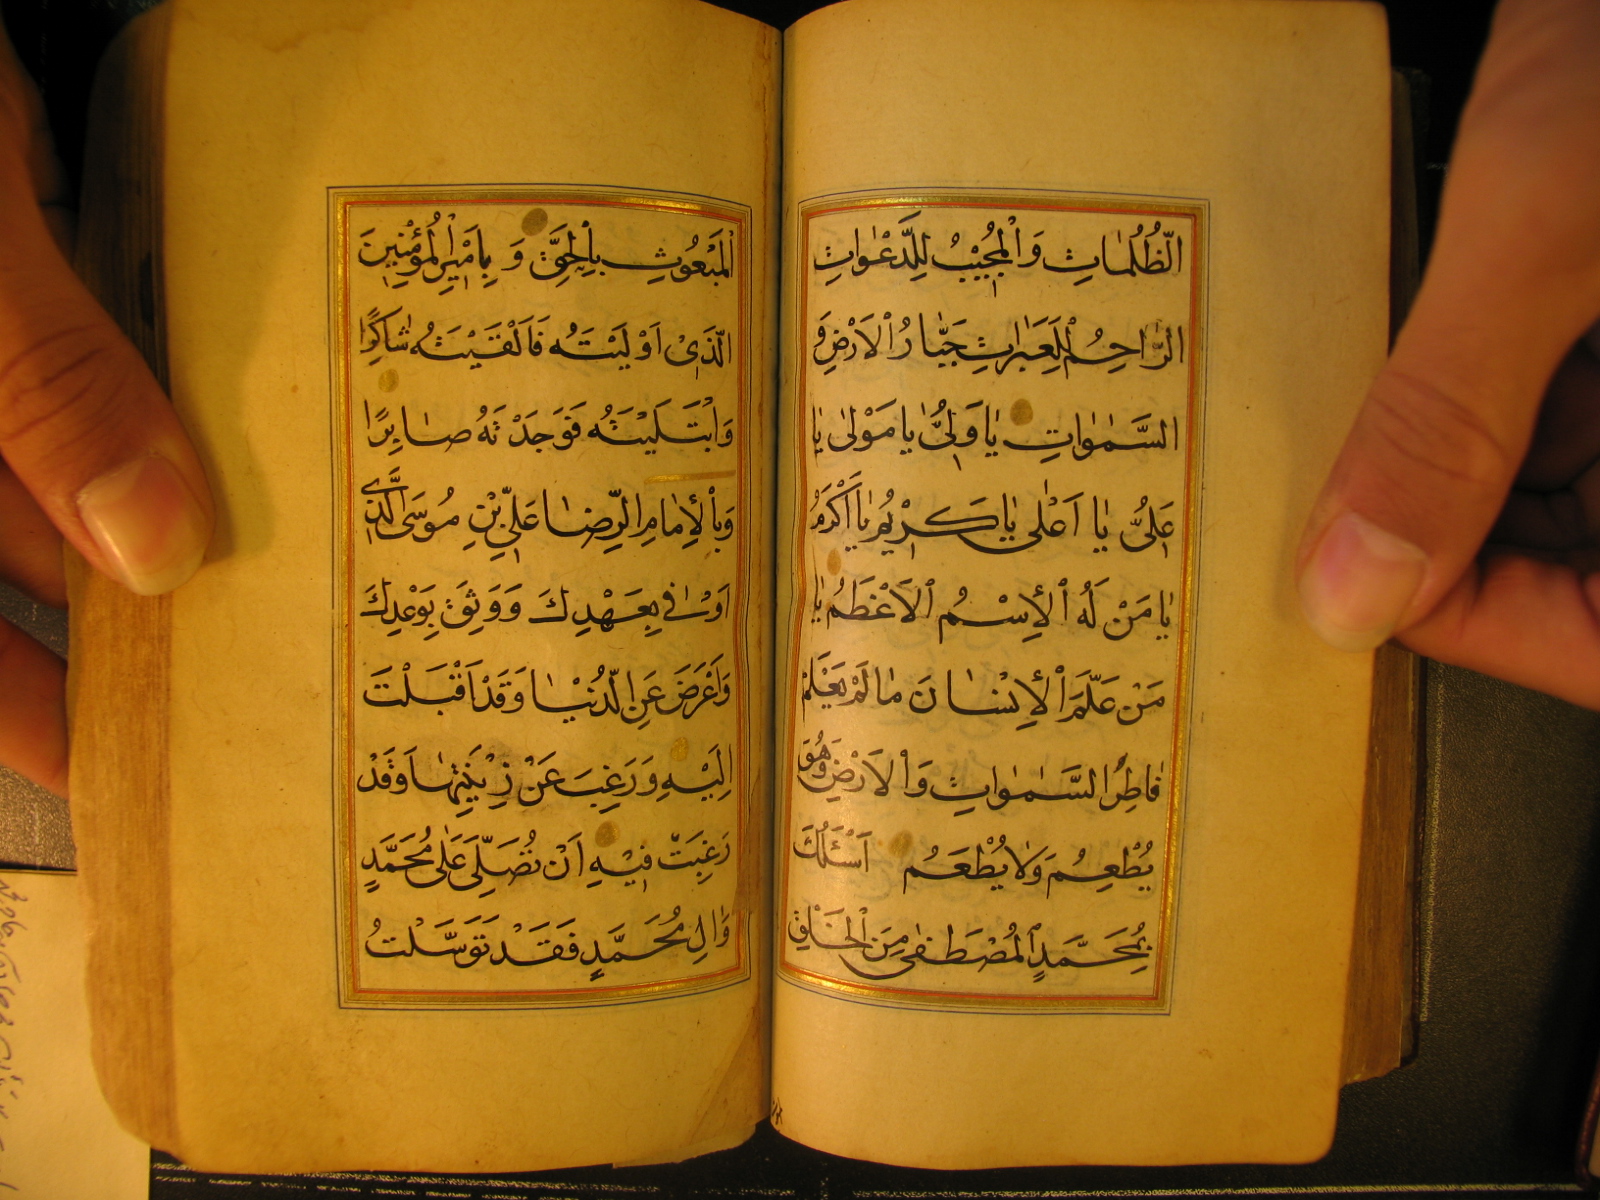 الظُّلُمَاتِ وَالْمُجِيْبُ لِلدَّعَوَاتِ
الرَّاحِمُ لِلْعَبَرَاتِ جَبَّارُ الْاَرْضِ وَ
السَّمٰوَاتِ يَا وَلِىُّ يَا مَوْلىٰ يَا
عَلِىُّ يَا اَعْلٰى يَا كَرِيْمُ يَا اَكْرَمُ
يَا مَنْ لَهُ الْاِسْمُ الْاَعْظَمُ يَا
مَنْ عَلَّمَ الْاِنْسَانَ مَا لَمْ يَعْلَمْ
فَاطِرُ السَّمٰوَاتِ وَالْاَرْضِ وَهُوَ
يُطْعِمُ وَلَا يُطْعَمُ اَسْئَلُكَ
بِمُحَمَّدٍ الْمُصْطَفٰى مِنَ الْخَلْقِ
الْمَبْعُوْثِ بِالْحَقِّ وَ بِاَمِيْرِ الْمُؤْمِنِيْنَ
الَّذِىْ اَوْلَيْتَهُ فَاَلْفَيْتَهُ شَاكِرًا
وَابْتَلَيْتَهُ فَوَجَدْتَهُ صَابِرًا
وَبِالْاِمَامِ الرِّضَا عَلِىِّ بْنِ مُوسَى الَّذِى
اَوْفٰى بِعَهْدِكَ وَوَثِقَ بِوَعْدِكَ
وَاَعْرَضَ عَنِ الدُّنْيَا وَقَدْ اَقْبَلَتْ
اِلَيْهِ وَرَغِبَ عَنْ زِيْنَتِهَا وَقَدْ
رَغِبَتْ فِيْهِ اَنْ تُصَلِّىَ عَلٰى مُحَمَّدٍ
وَاٰلِ مُحَمَّدٍ فَقَدْ تَوَسَّلْتُ